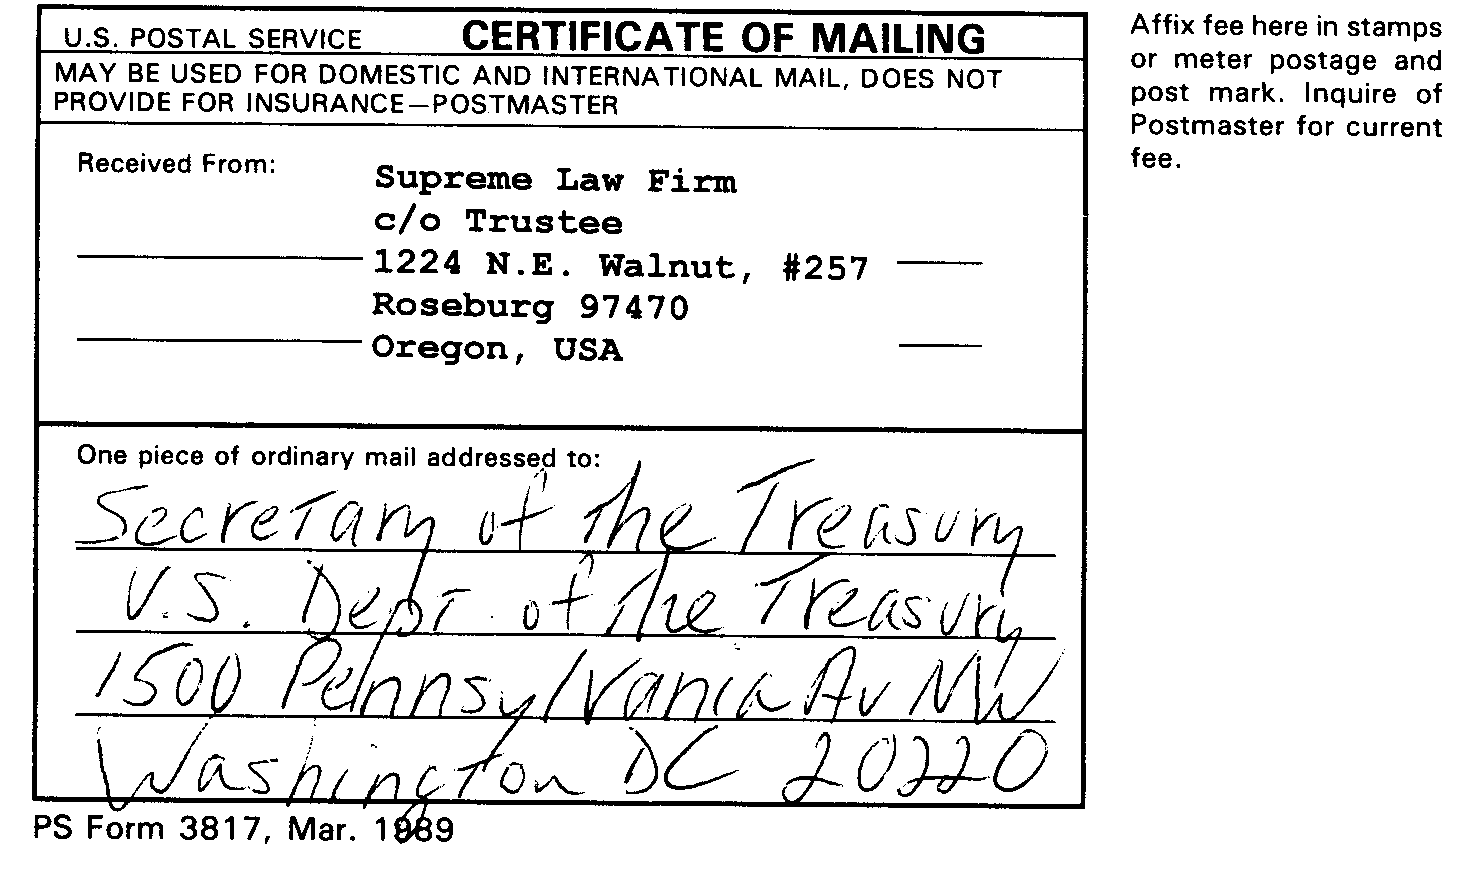 U.S. POSTAL SERVICE CERTIFICATE OF MAILING
MAY BE USED FOR DOMESTIC AND INTERNATIONAL MAIL, DOES NOT
PROVIDE FOR INSURANCE—POSTMASTER
Received From:
Supreme Law Firm
c/o Trustee
1224 N.E. Walnut, #257
Roseburg 97470
Oregon, USA
One piece of ordinary mail addressed to:
Secretary of the Treasury
U.S. Dept. of the Treasury
1500 Pennsylvania Av NW
Washington DC 20220
PS Form 3817, Mar. 1989
Affix fee here in stamps
or meter postage and
post mark. Inquire of
Postmaster for current
fee.